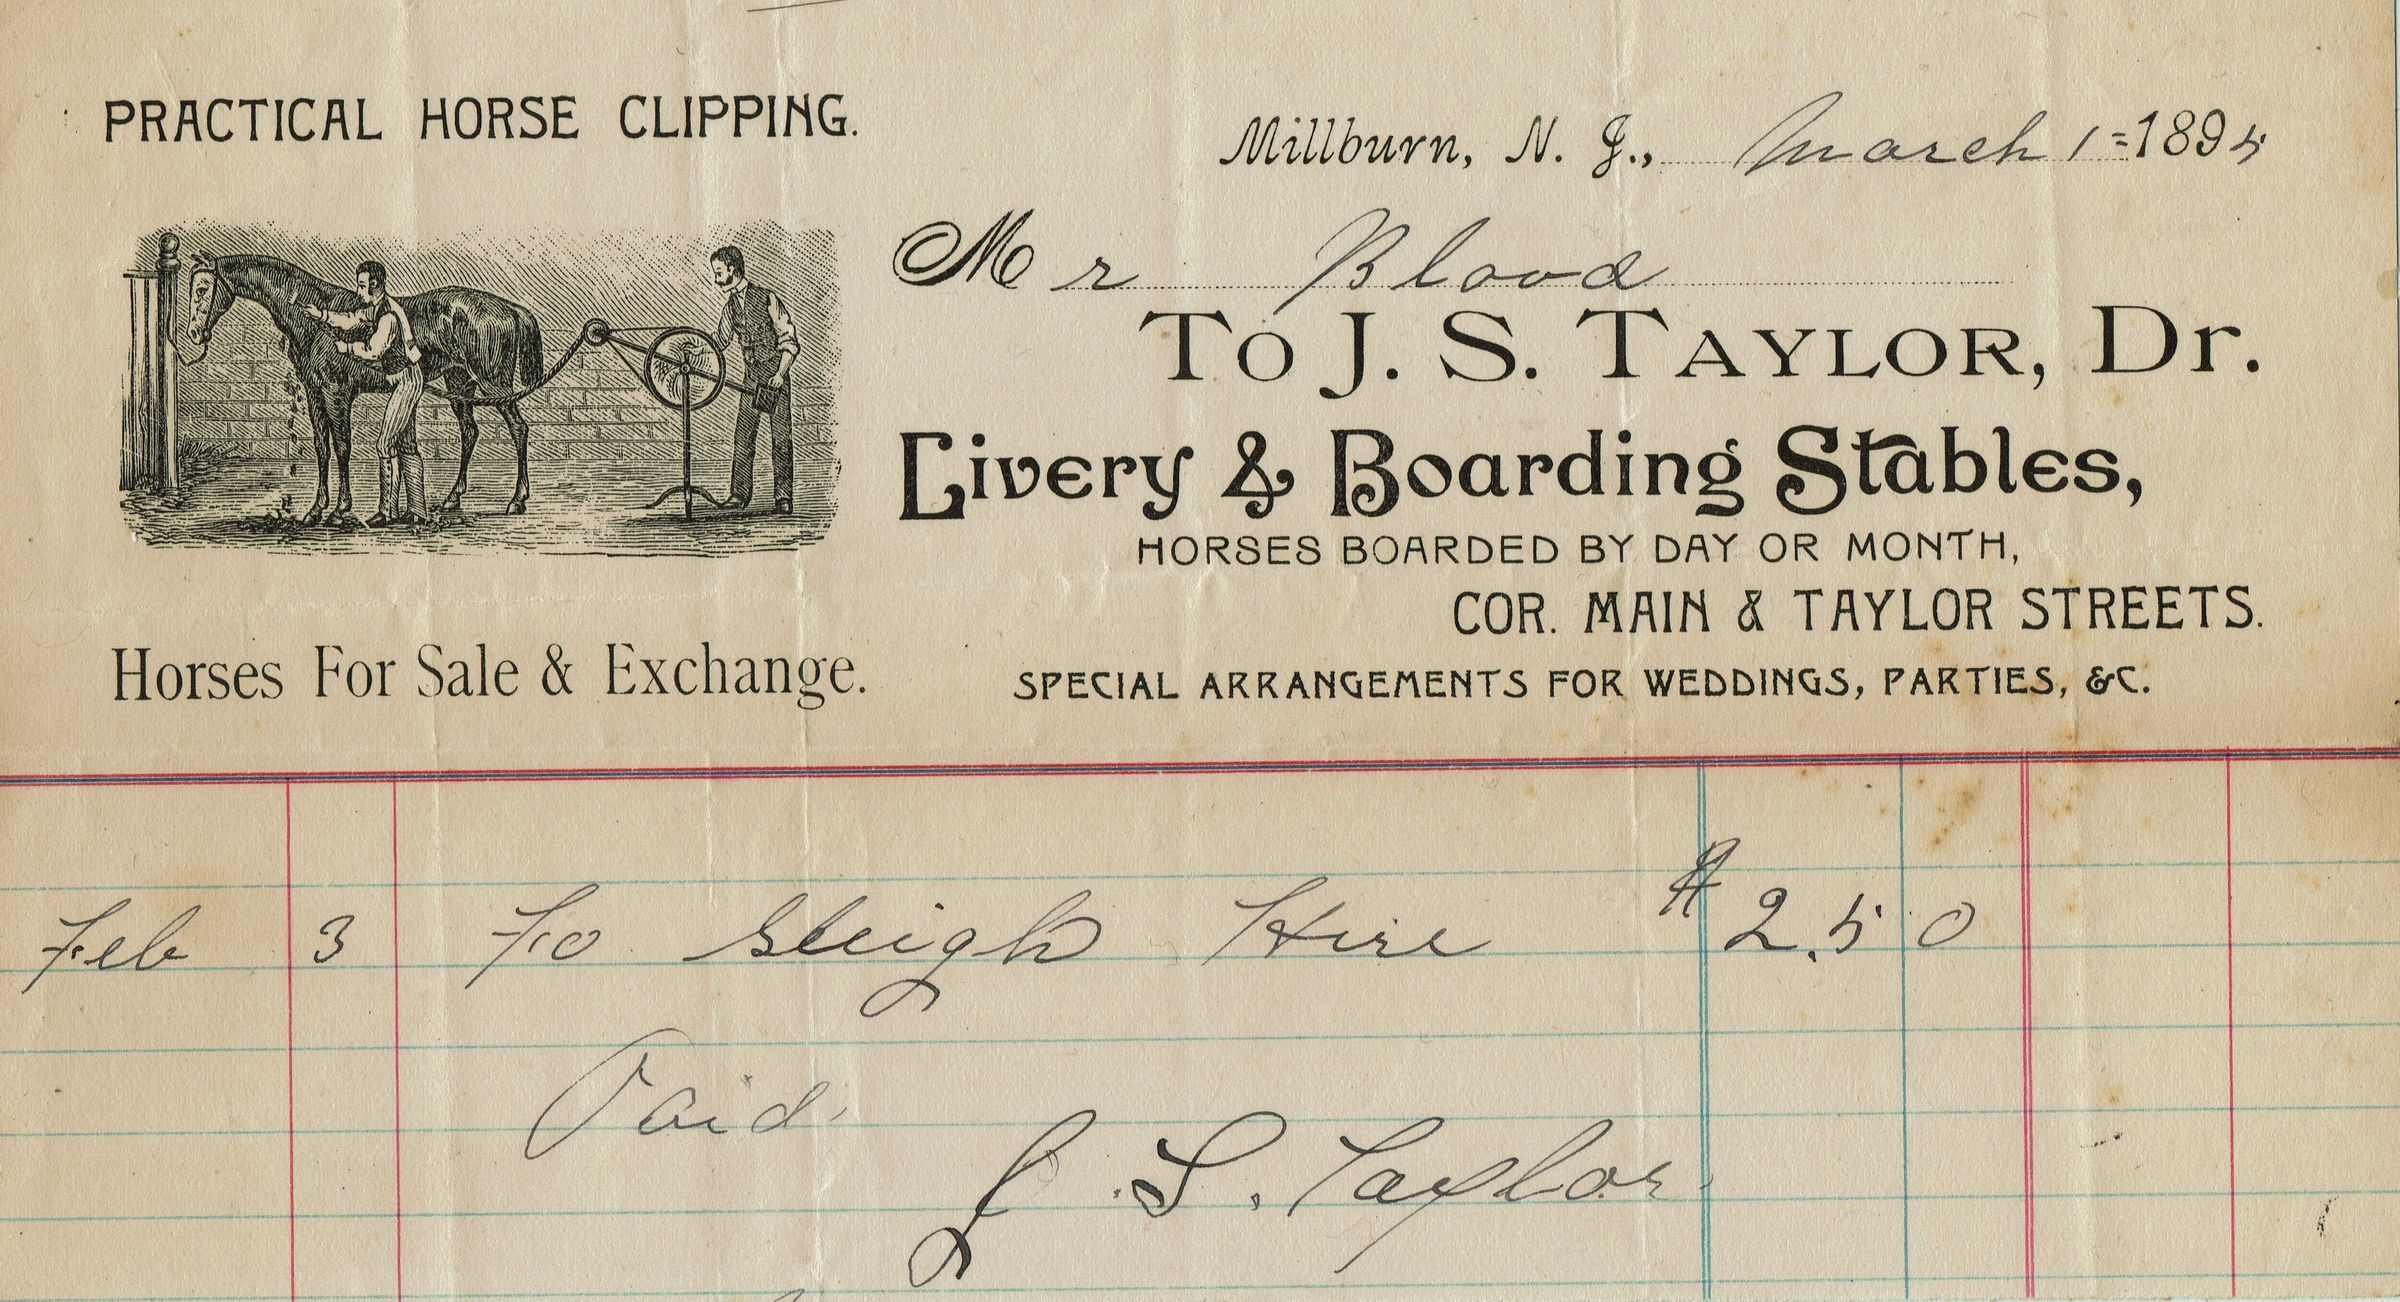 PRACTICAL HORSE CLIPPING.
Millburn, N. J., March 1= 1895
Mr Blood
To J. S. TAYLOR, Dr.
Livery & Boarding Stables,
HORSES BOARDED BY DAY OR MONTH,
COR. MAIN & TAYLOR STREETS.
Horses For Sale & Exchange.
SPECIAL ARRANGEMENTS FOR WEDDINGS, PARTIES, &C.
Feb 3 To Sleigh Hire $2.50
Paid
J. S. Taylor